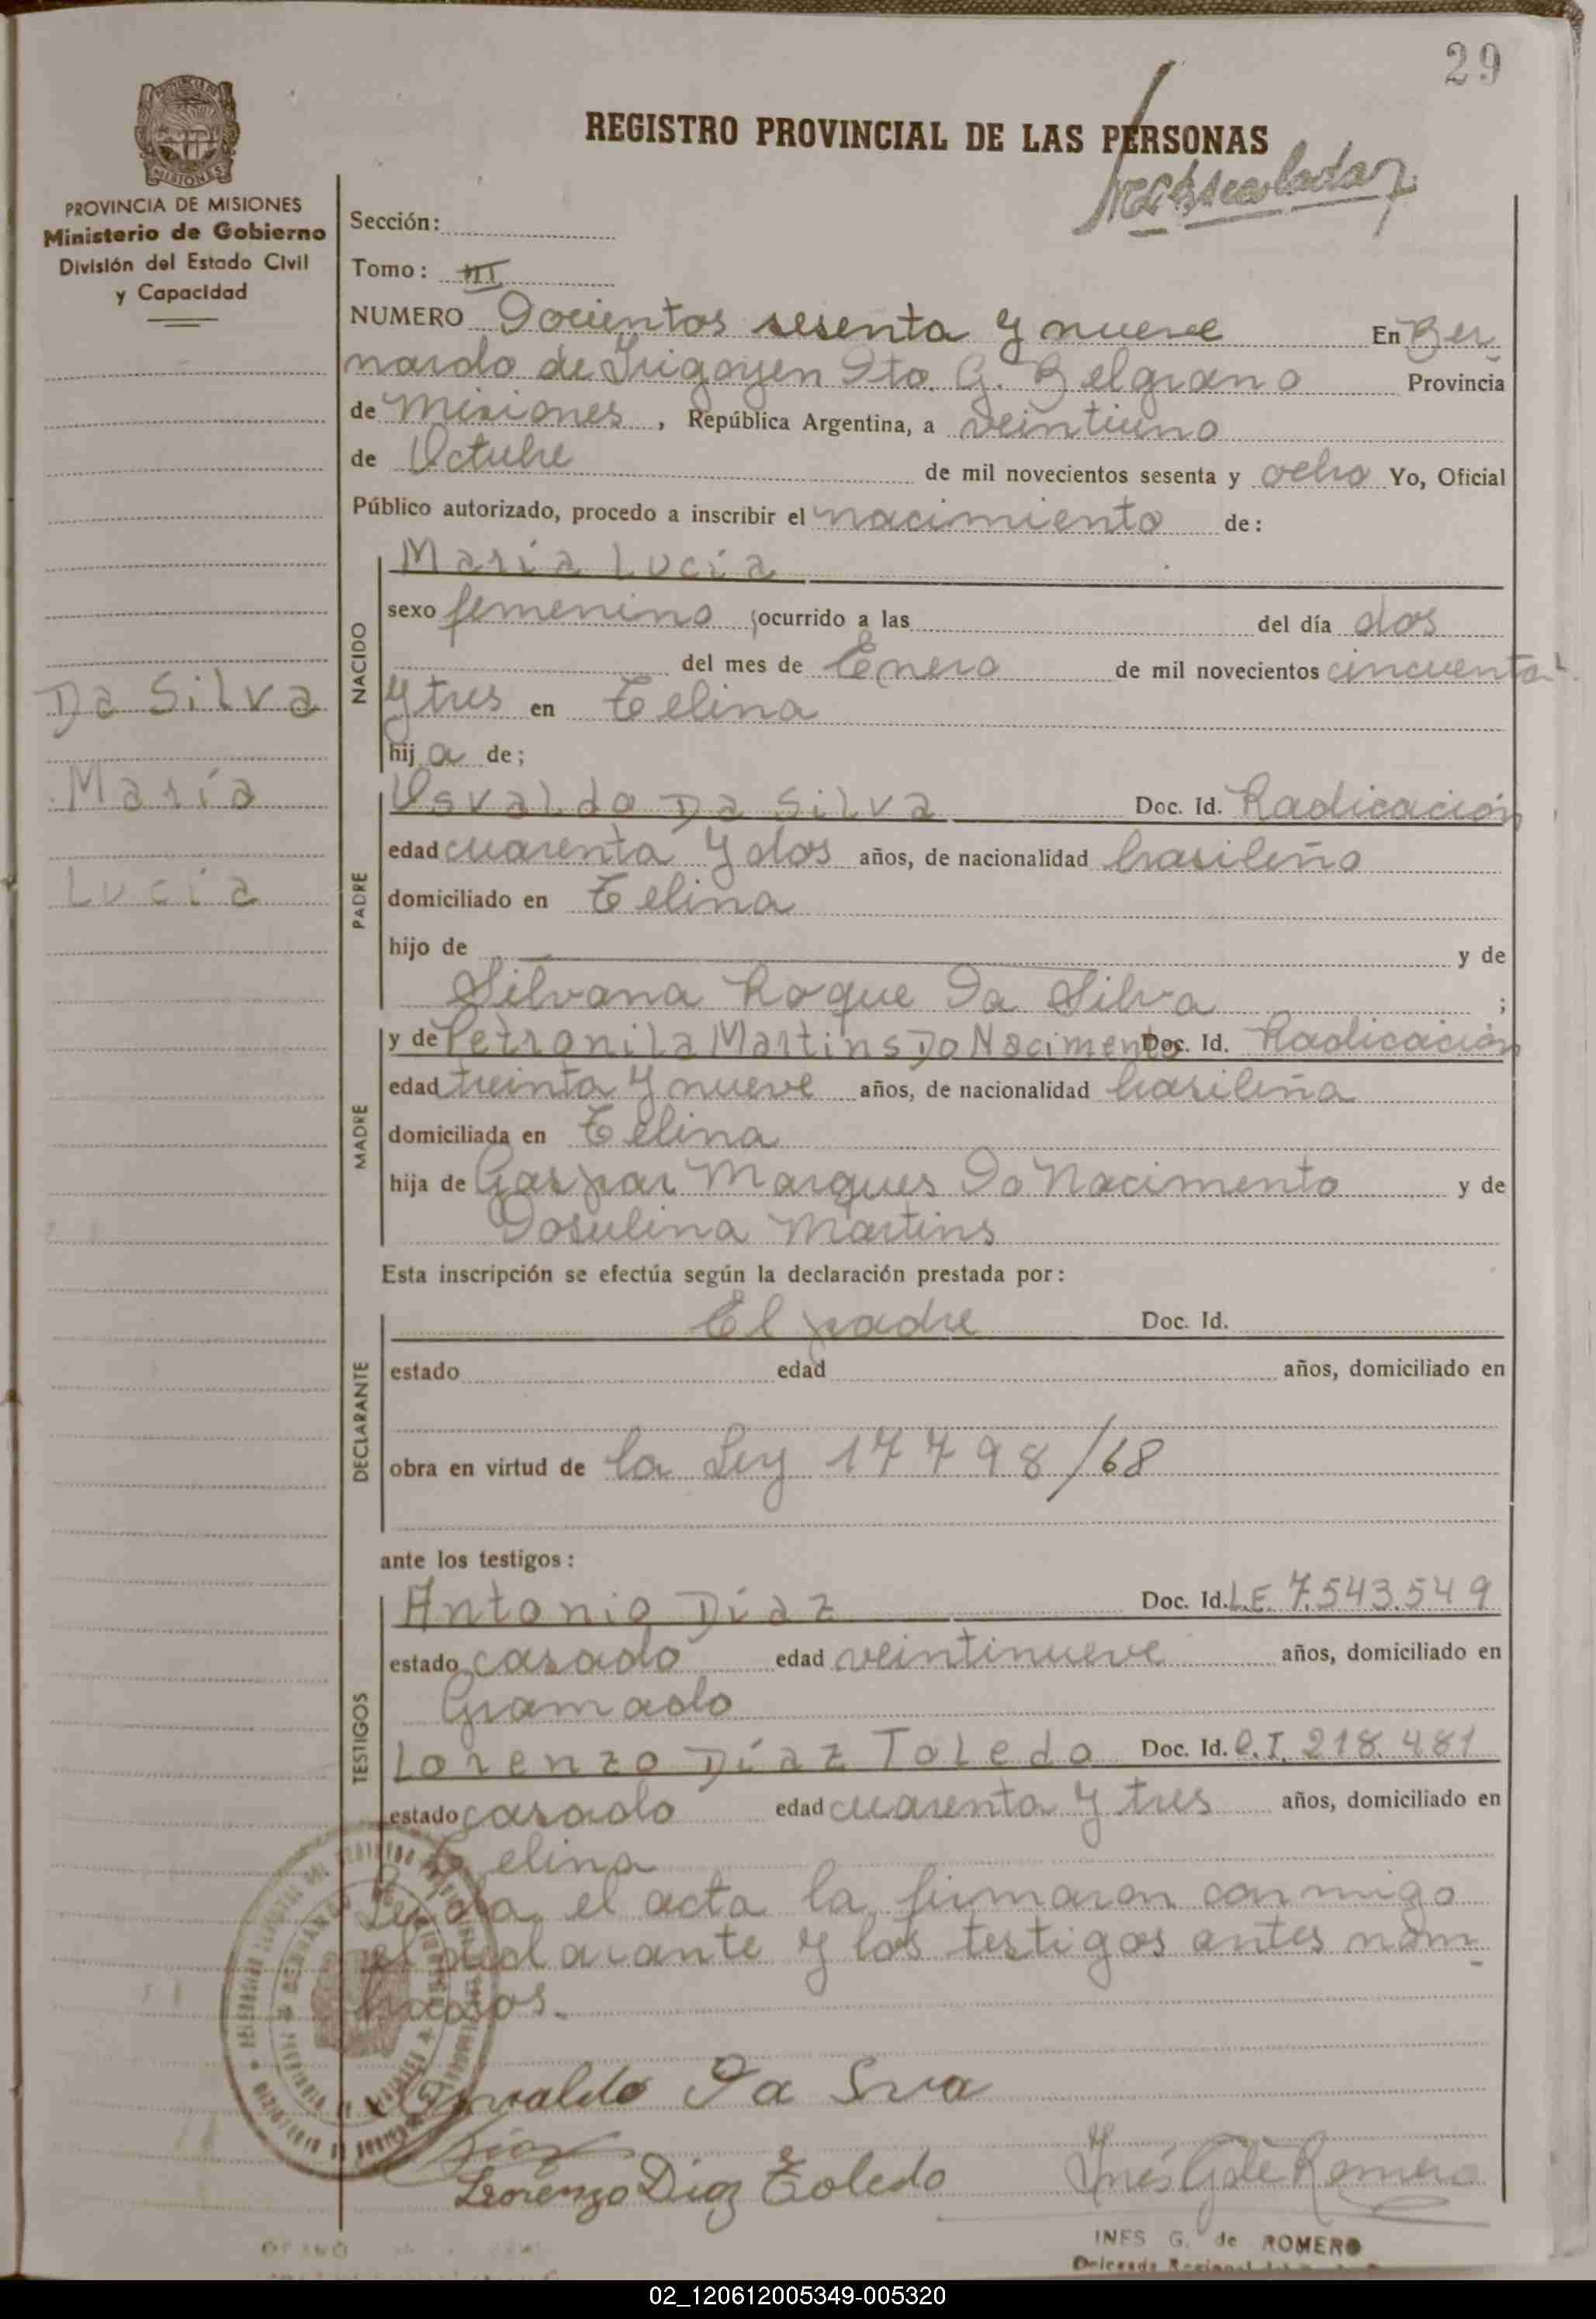 29
REGISTRO PROVINCIAL DE LAS PERSONAS
PROVINCIA DE MISIONES
Ministerio de Gobierno
División del Estado Civil
y Capacidad
Sección:
Tomo: III
NUMERO Docientos sesenta y nueve En Ber
nardo de Irigoyen Dto. G. Belgrano Provincia
de Misiones, República Argentina, a veintiuno
de Octubre de mil novecientos sesenta y ocho Yo, Oficial
Público autorizado, procedo a inscribir el nacimiento de:
NACIDO
María Lucía
sexo femenino ;ocurrido a las del día dos
del mes de Enero de mil novecientos cincuenta
y tres en Celina
hija de;
Da Silva
María
Lucía
PADRE
Osvaldo Da Silva Doc. Id. Radicación
edad cuarenta y dos años, de nacionalidad brasileño
domiciliado en Celina
hijo de y de
Silvana Roque Da Silva ;
MADRE
y de Petronila Martins Do Nacimento Doc. Id. Radicación
edad treinta y nueve años, de nacionalidad brasileña
domiciliada en Celina
hija de Gaspar Marques Do Nacimento y de
Dosulina Martins
Esta inscripción se efectúa según la declaración prestada por:
DECLARANTE
El padre Doc. Id.
estado edad años, domiciliado en
obra en virtud de la Ley 17798/68
ante los testigos:
TESTIGOS
Antonio Díaz Doc. Id. L.E. 7.543.549
estado casado edad veintinueve años, domiciliado en
Gramado
Lorenzo Díaz Toledo Doc. Id. C.I. 218.481
estado casado edad cuarenta y tres años, domiciliado en
Celina
Leída el acta la firmaron conmigo
el declarante y los testigos antes nom
brados.
Osvaldo Da Sva
Díaz
Lorenzo Díaz Toledo
Inés G de Romero
INES G. de ROMERO
02_120612005349-005320